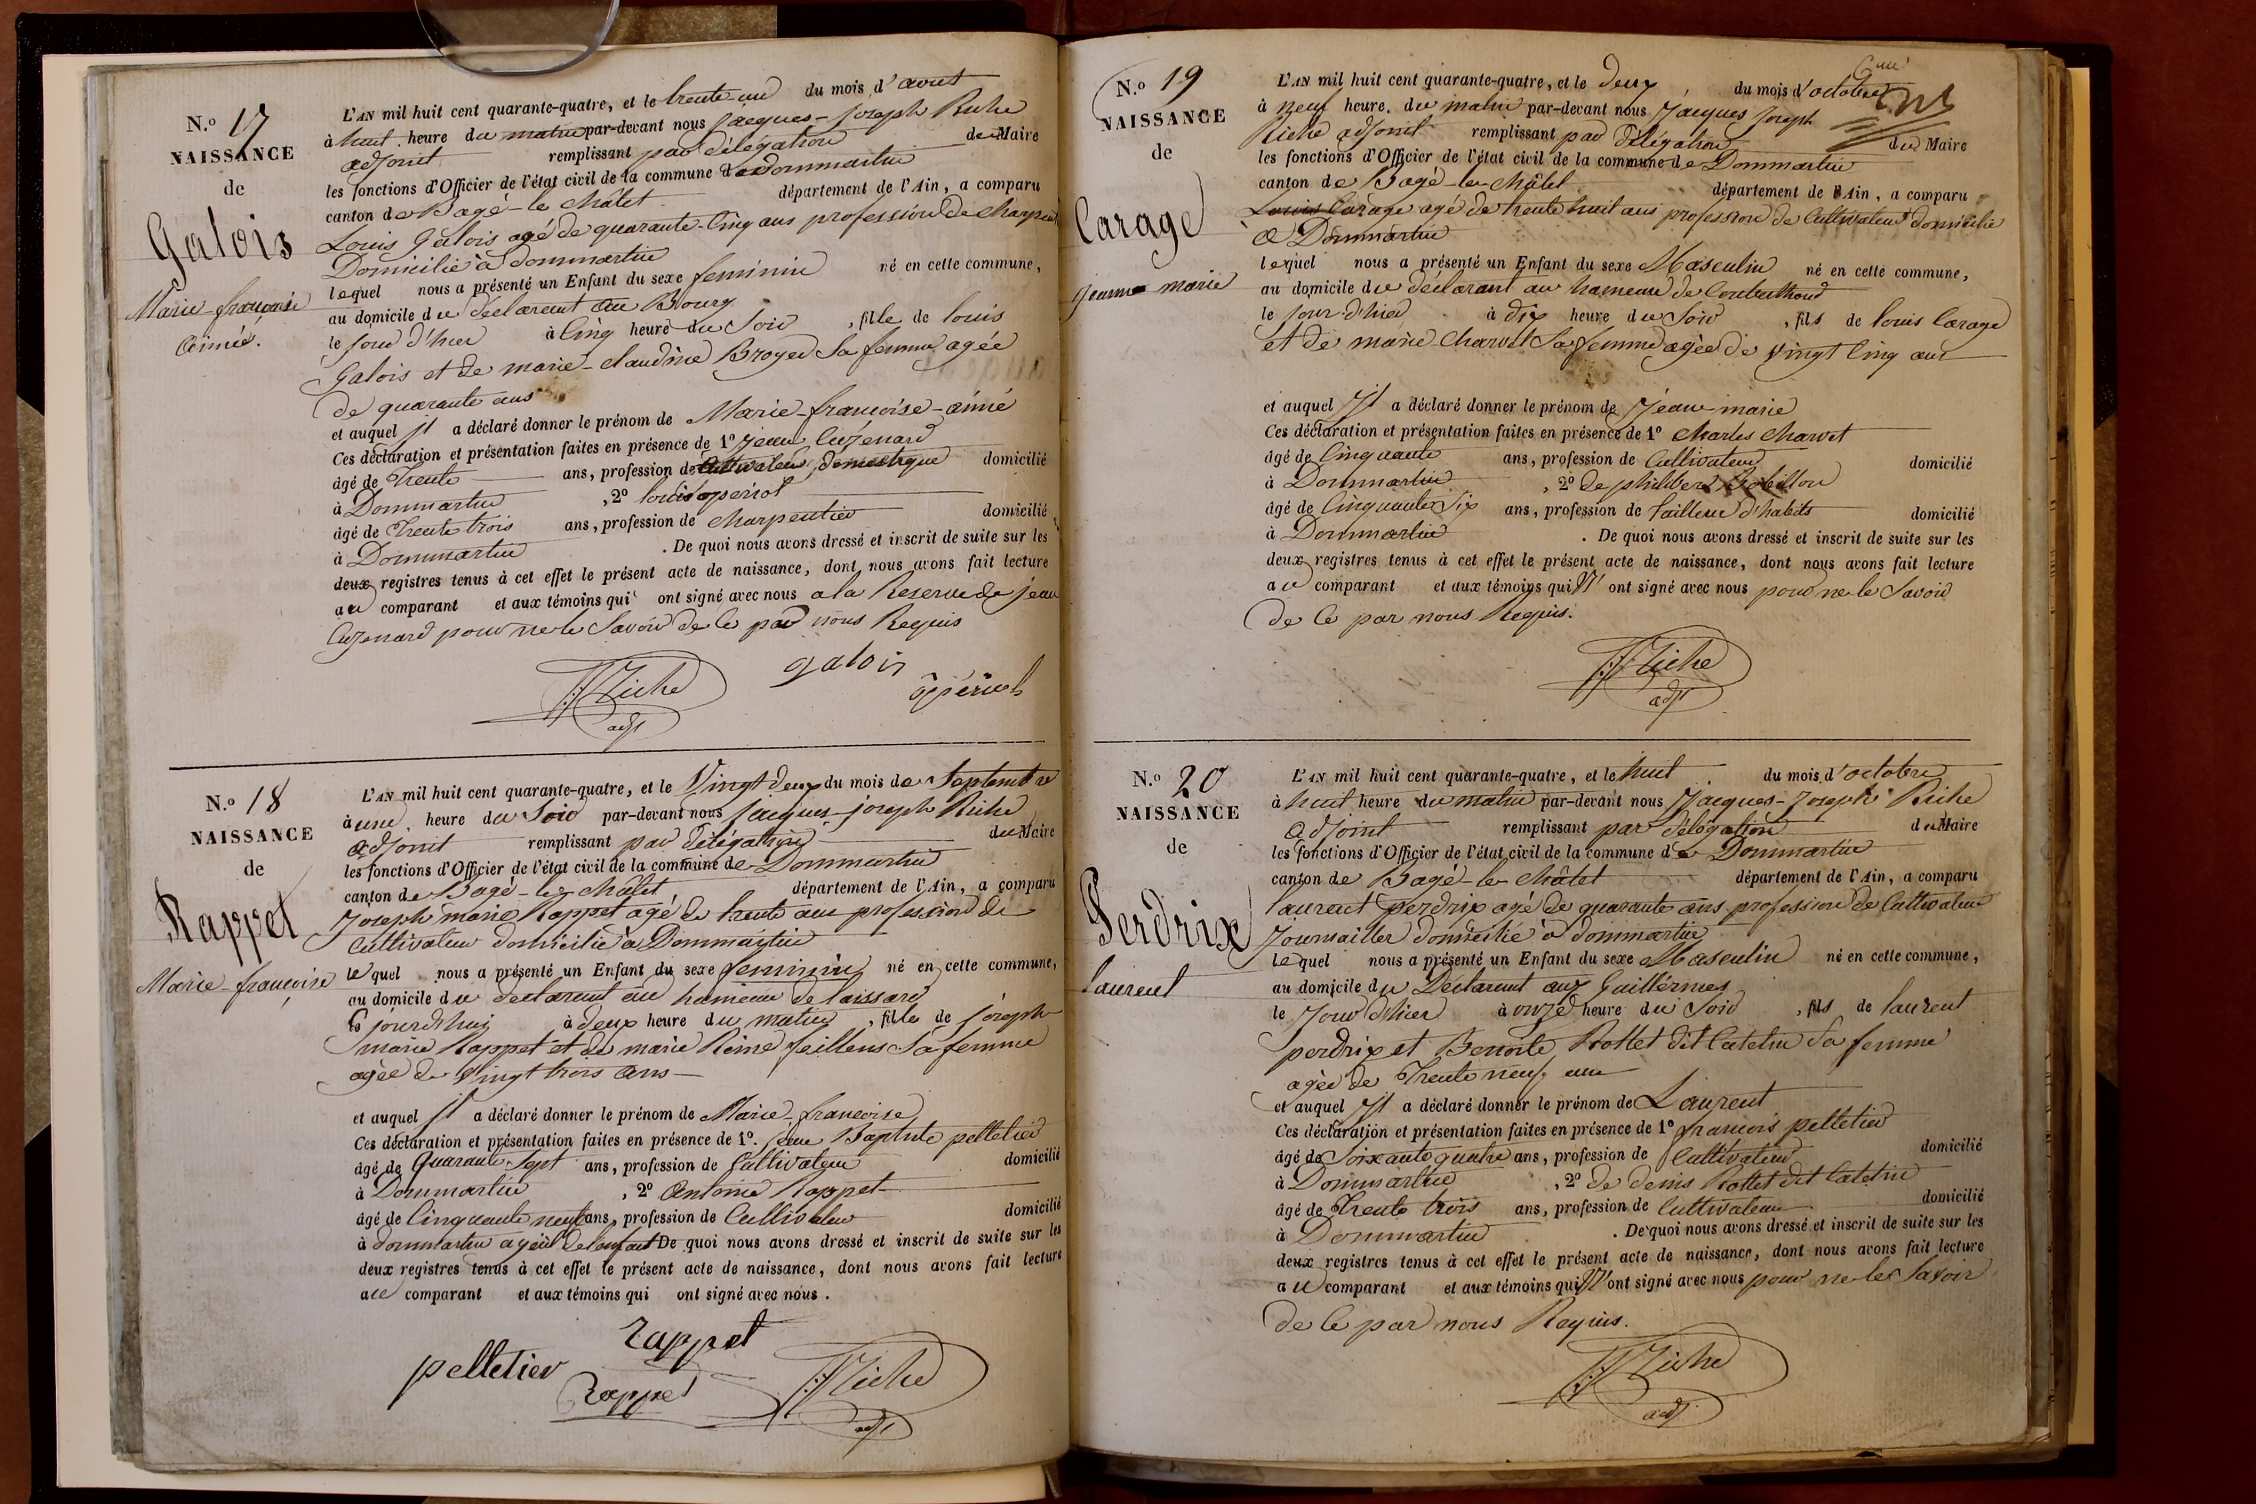 N.o 17
NAISSANCE
de
Galois
Marie-françoise
aimée.
L'AN mil huit cent quarante-quatre, et le trente-un du mois d'aout
à huit heure du matin par-devant nous jacques-joseph Riche
adjoint remplissant par délégation du Maire
les fonctions d'Officier de l'état civil de la commune de dommartin
canton de Bagé-le-châtel département de l'Ain, a comparu
Louis Galois agé de quarante-cinq ans profession de charpentier
Domicilié à dommartin
lequel nous a présenté un Enfant du sexe feminin né en cette commune,
au domicile du déclarent au Bourg
le jour d'hier à cinq heure du soir , fille de louis
Galois et de marie-claudine Broyer sa femme agée
de quarante ans
et auquel il a déclaré donner le prénom de Marie-françoise-aimé
Ces déclaration et présentation faites en présence de 1o jean Cuzenard
âgé de Trente ans, profession de cultivateur domestique domicilié
à Dommartin , 2o
âgé de Trente trois ans, profession de charpentier domicilié
à Dommartin . De quoi nous avons dressé et inscrit de suite sur les
deux registres tenus à cet effet le présent acte de naissance, dont nous avons fait lecture
au comparant et aux témoins qui ont signé avec nous a la Reserve de jean
Cuzenard pour ne le savoir de ce par nous Requis
JJRiche galois
adjt
N.o 18
NAISSANCE
de
Rappet
Marie-françoise
L'AN mil huit cent quarante-quatre, et le Vingt deux du mois de Septembre
à une heure du soir par-devant nous jacques-joseph Riche
adjoint remplissant par délégation du Maire
les fonctions d'Officier de l'état civil de la commune de Dommartin
canton de Bagé-le-châtel département de l'Ain, a comparu
joseph marie Rappet agé de trente ans profession de
cultivateur domicilié à Dommartin
lequel nous a présenté un Enfant du sexe feminin né en cette commune,
au domicile du declarent au hameau de laissard
le jourd'hui à deux heure du matin , fille de joseph
marie Rappet et de marie Reine feillens sa femme
agée de Vingt trois ans
et auquel il a déclaré donner le prénom de Marie-françoise
Ces déclaration et présentation faites en présence de 1o. jean Baptiste pelletier
âgé de Quarante Sept ans, profession de Cultivateur domicilié
à Dommartin , 2o Antoine Rappet
âgé de Cinquante neuf ans, profession de Cultivateur domicilié
à dommartin ayeul de lenfant De quoi nous avons dressé et inscrit de suite sur les
deux registres tenus à cet effet le présent acte de naissance, dont nous avons fait lecture
au comparant et aux témoins qui ont signé avec nous.
rappet
pelletier
rappet JJRiche
adjt
N.o 19
NAISSANCE
de
Carage
jeanne marie
L'AN mil huit cent quarante-quatre, et le deux du mois d'octobre
à neuf heure du matin par-devant nous jacques joseph
Riche adjoint remplissant par Délégation du Maire
les fonctions d'Officier de l'état civil de la commune de Dommartin
canton de Bagé-le-châtel département de l'Ain, a comparu
Louis Carage agé de trente huit ans profession de Cultivateur domicilié
à Dommartin
lequel nous a présenté un Enfant du sexe Masculin né en cette commune,
au domicile du déclarant au hameau de
le jour d'hier à dix heure du soir , fils de louis Carage
et de marie Charvet sa femme agée de vingt cinq ans
et auquel il a déclaré donner le prénom de jean-marie
Ces déclaration et présentation faites en présence de 1o Charles Charvet
âgé de Cinquante ans, profession de Cultivateur domicilié
à Dommartin , 2o de philibert Robillon
âgé de Cinquante Six ans, profession de tailleur d'habits domicilié
à Dommartin . De quoi nous avons dressé et inscrit de suite sur les
deux registres tenus à cet effet le présent acte de naissance, dont nous avons fait lecture
au comparant et aux témoins qui N'ont signé avec nous pour ne le savoir
de ce par nous Requis.
JJRiche
adjt
N.o 20
NAISSANCE
de
Perdrix
laurent
L'AN mil huit cent quarante-quatre, et le huit du mois d'octobre
à huit heure du matin par-devant nous jacques-joseph Riche
adjoint remplissant par délégation du Maire
les fonctions d'Officier de l'état civil de la commune de Dommartin
canton de Bagé-le-châtel département de l'Ain, a comparu
laurent perdrix agé de quarante ans profession de Cultivateur
journailler domicilié à dommartin
lequel nous a présenté un Enfant du sexe Masculin né en cette commune,
au domicile du Déclarent aux Guillermes
le jour d'hier à onze heure du soir , fils de laurent
perdrix et Benoite Rollet dit Catelin sa femme
agée de Trente neuf ans
et auquel il a déclaré donner le prénom de Laurent
Ces déclaration et présentation faites en présence de 1o françois pelletier
âgé de Soixante quatre ans, profession de Cultivateur domicilié
à Dommartin , 2o de denis Rollet dit Catelin
âgé de Trente trois ans, profession de Cultivateur domicilié
à Dommartin . De quoi nous avons dressé et inscrit de suite sur les
deux registres tenus à cet effet le présent acte de naissance, dont nous avons fait lecture
au comparant et aux témoins qui N'ont signé avec nous pour ne le savoir
de ce par nous Requis.
JJRiche
adjt